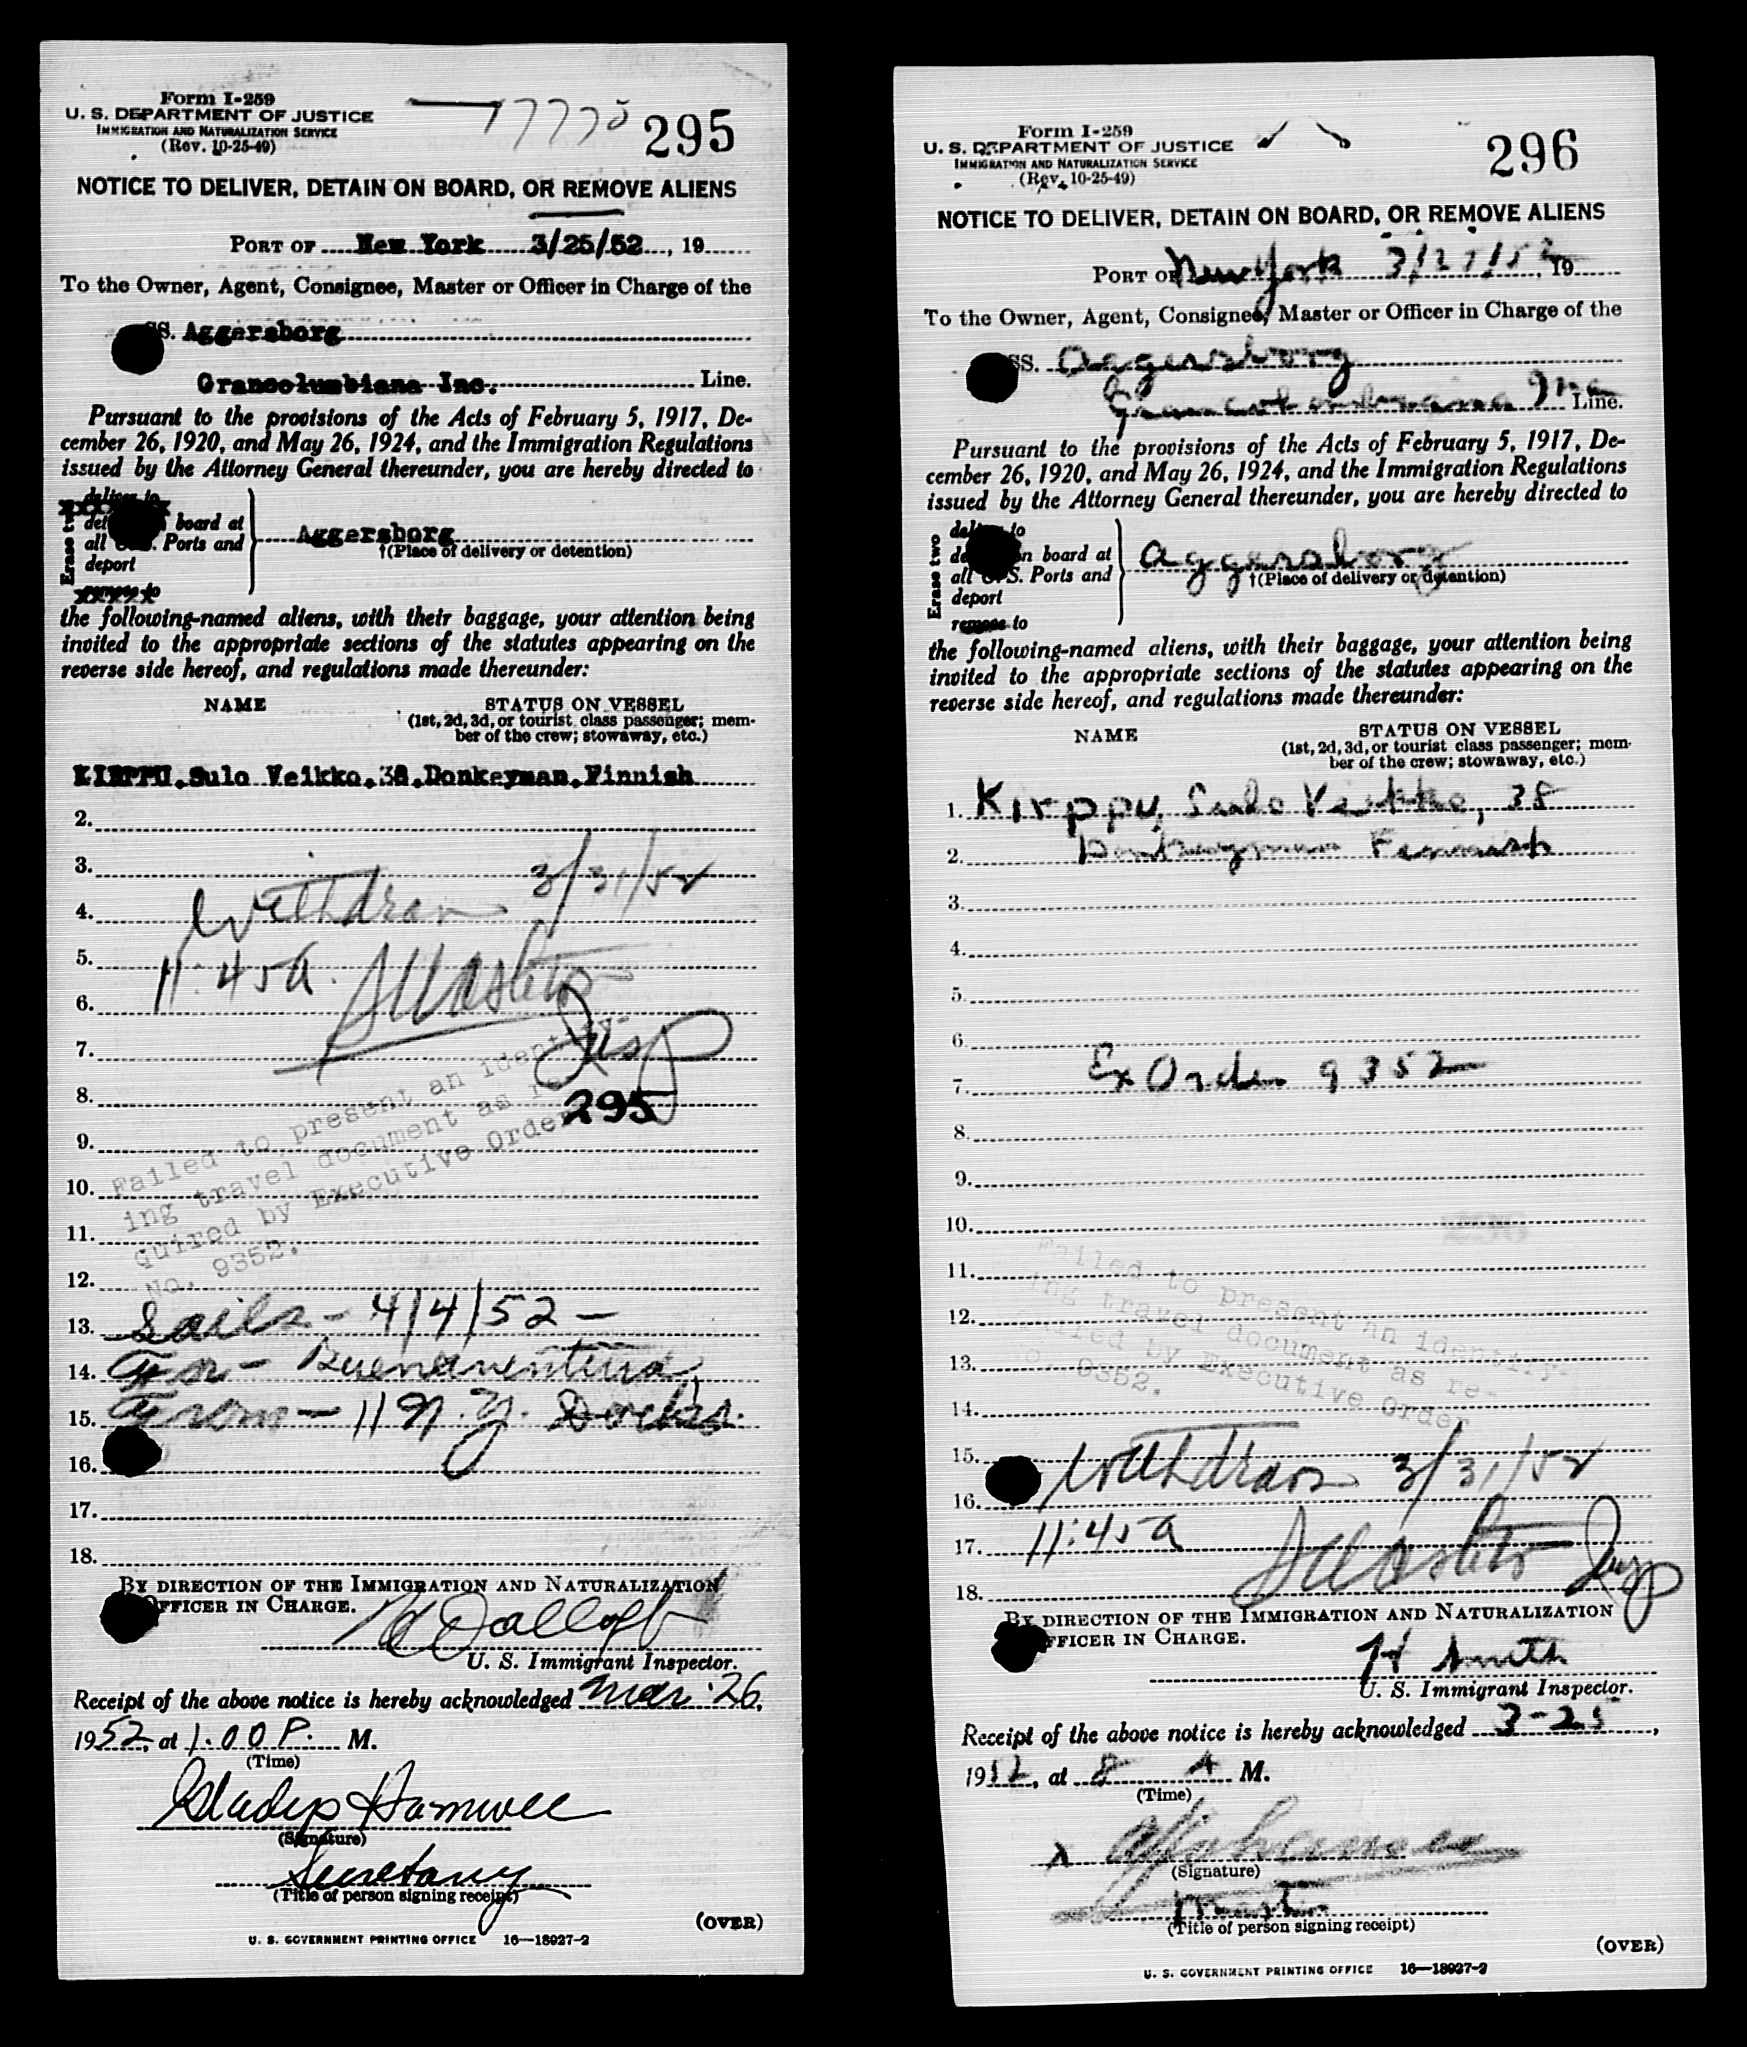 Form I-259
U. S. DEPARTMENT OF JUSTICE
IMMIGRATION AND NATURALIZATION SERVICE
(Rev. 10-25-49)
295
NOTICE TO DELIVER, DETAIN ON BOARD, OR REMOVE ALIENS
PORT OF New York 3/25/52, 19
To the Owner, Agent, Consignee, Master or Officer in Charge of the
SS. Aggersborg
Grancolumbiana Inc. Line.
Pursuant to the provisions of the Acts of February 5, 1917, De-
cember 26, 1920, and May 26, 1924, and the Immigration Regulations
issued by the Attorney General thereunder, you are hereby directed to
Erase two
deliver to
board at
all U.S. Ports and
deport
remove to
Aggersborg
†(Place of delivery or detention)
the following-named aliens, with their baggage, your attention being
invited to the appropriate sections of the statutes appearing on the
reverse side hereof, and regulations made thereunder:
NAME STATUS ON VESSEL
(1st, 2d, 3d, or tourist class passenger; mem-
ber of the crew; stowaway, etc.)
Sulo Veikko, 38, Donkeyman, Finnish
2.
3.
4. Withdran 3/31/52
5. 11:45A.
6.
7. Insp
8. 295
9.
10.
11.
12.
Failed to present an identify-
ing travel document as re-
quired by Executive Order
No. 9352.
13. Sails - 4/4/52 -
14. For - Buenaventura
15. From - 11 N.Y. Docks.
16.
17.
18.
BY DIRECTION OF THE IMMIGRATION AND NATURALIZATION
OFFICER IN CHARGE.
U. S. Immigrant Inspector.
Receipt of the above notice is hereby acknowledged Mar. 26,
1952, at 1.00 P. M.
(Time)
Gladys
(Signature)
Secretary
(Title of person signing receipt)
(OVER)
U. S. GOVERNMENT PRINTING OFFICE 16—18927-2
Form I-259
U. S. DEPARTMENT OF JUSTICE
IMMIGRATION AND NATURALIZATION SERVICE
(Rev. 10-25-49)
296
NOTICE TO DELIVER, DETAIN ON BOARD, OR REMOVE ALIENS
PORT OF New York 19
To the Owner, Agent, Consignee, Master or Officer in Charge of the
SS. Aggersborg
Line.
Pursuant to the provisions of the Acts of February 5, 1917, De-
cember 26, 1920, and May 26, 1924, and the Immigration Regulations
issued by the Attorney General thereunder, you are hereby directed to
Erase two
deliver to
on board at
all U.S. Ports and
deport
remove to
Aggersborg
†(Place of delivery or detention)
the following-named aliens, with their baggage, your attention being
invited to the appropriate sections of the statutes appearing on the
reverse side hereof, and regulations made thereunder:
NAME STATUS ON VESSEL
(1st, 2d, 3d, or tourist class passenger; mem-
ber of the crew; stowaway, etc.)
1. Kirppu, Sulo Veikko, 38
2. Donkeyman Finnish
3.
4.
5.
6.
7. Ex Order 9352
8.
9.
10. 296
11.
12.
13.
14.
Failed to present an identify-
ing travel document as re-
quired by Executive Order
No. 9352.
15.
16. Withdran 3/31/52
17. 11:45A Insp
18.
BY DIRECTION OF THE IMMIGRATION AND NATURALIZATION
OFFICER IN CHARGE.
H Smith
U. S. Immigrant Inspector.
Receipt of the above notice is hereby acknowledged 3-25,
1952, at 8 A M.
(Time)
(Signature)
Master
(Title of person signing receipt)
(OVER)
U. S. GOVERNMENT PRINTING OFFICE 16—18927-2